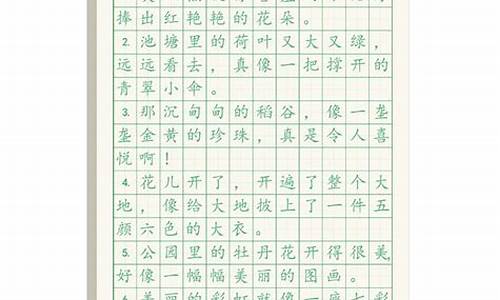 捧出红艳艳的花朵。
2. 池塘里的荷叶又大又绿，
远远看去，真像一把撑开的
青翠小伞。
3. 那沉甸甸的稻谷，像一垄
垄金黄的珍珠，真是令人喜
悦啊！
4. 花儿开了，开遍了整个大
地，像给大地披上了一件五
颜六色的大衣。
5. 公园里的牡丹花开得很美，
好像一幅幅美丽的图画。
6. 美丽的彩虹就像一座七彩